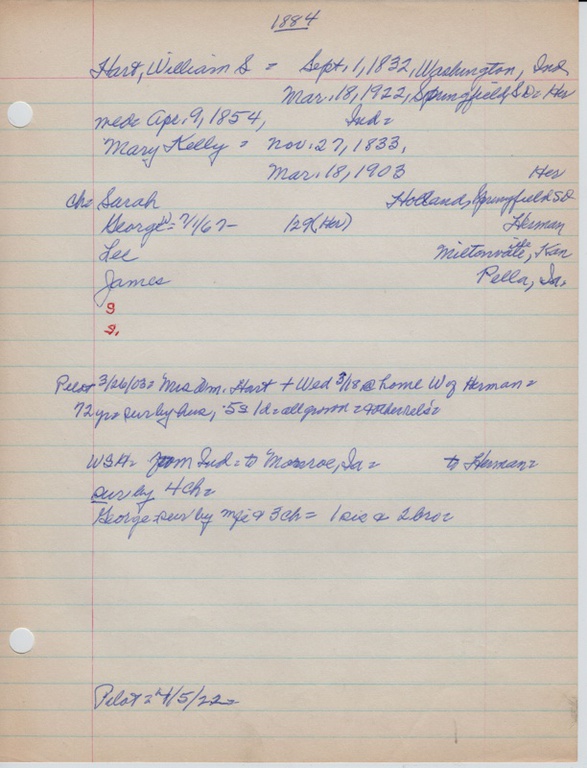 1884
Hart, William S = Sept. 1, 1832, Washington, Ind
Mar. 18, 1922, Springfield SD = Her
med = Apr. 9, 1854, Ind =
Mary Kelly = Nov. 27, 1833,
Mar. 18, 1903 Her
Ch = Sarah Holland, Springfield SD
George = 7/1/67 - 129 (Her) Herman
Lee Miltonvale, Kan
James Pella, Ia.
s
s.
Pilot 3/26/03 = Mrs Wm. Hart + Wed 3/18 @ home W of Herman =
72 yrs = sur by hus, 5s 1d = all grown =
WSH = from Ind = to Monroe, Ia = to Herman =
sur by 4 Ch =
George = sur by & 3 ch = 1 sis & 2 bro =
Pilot = 4/5/22 =